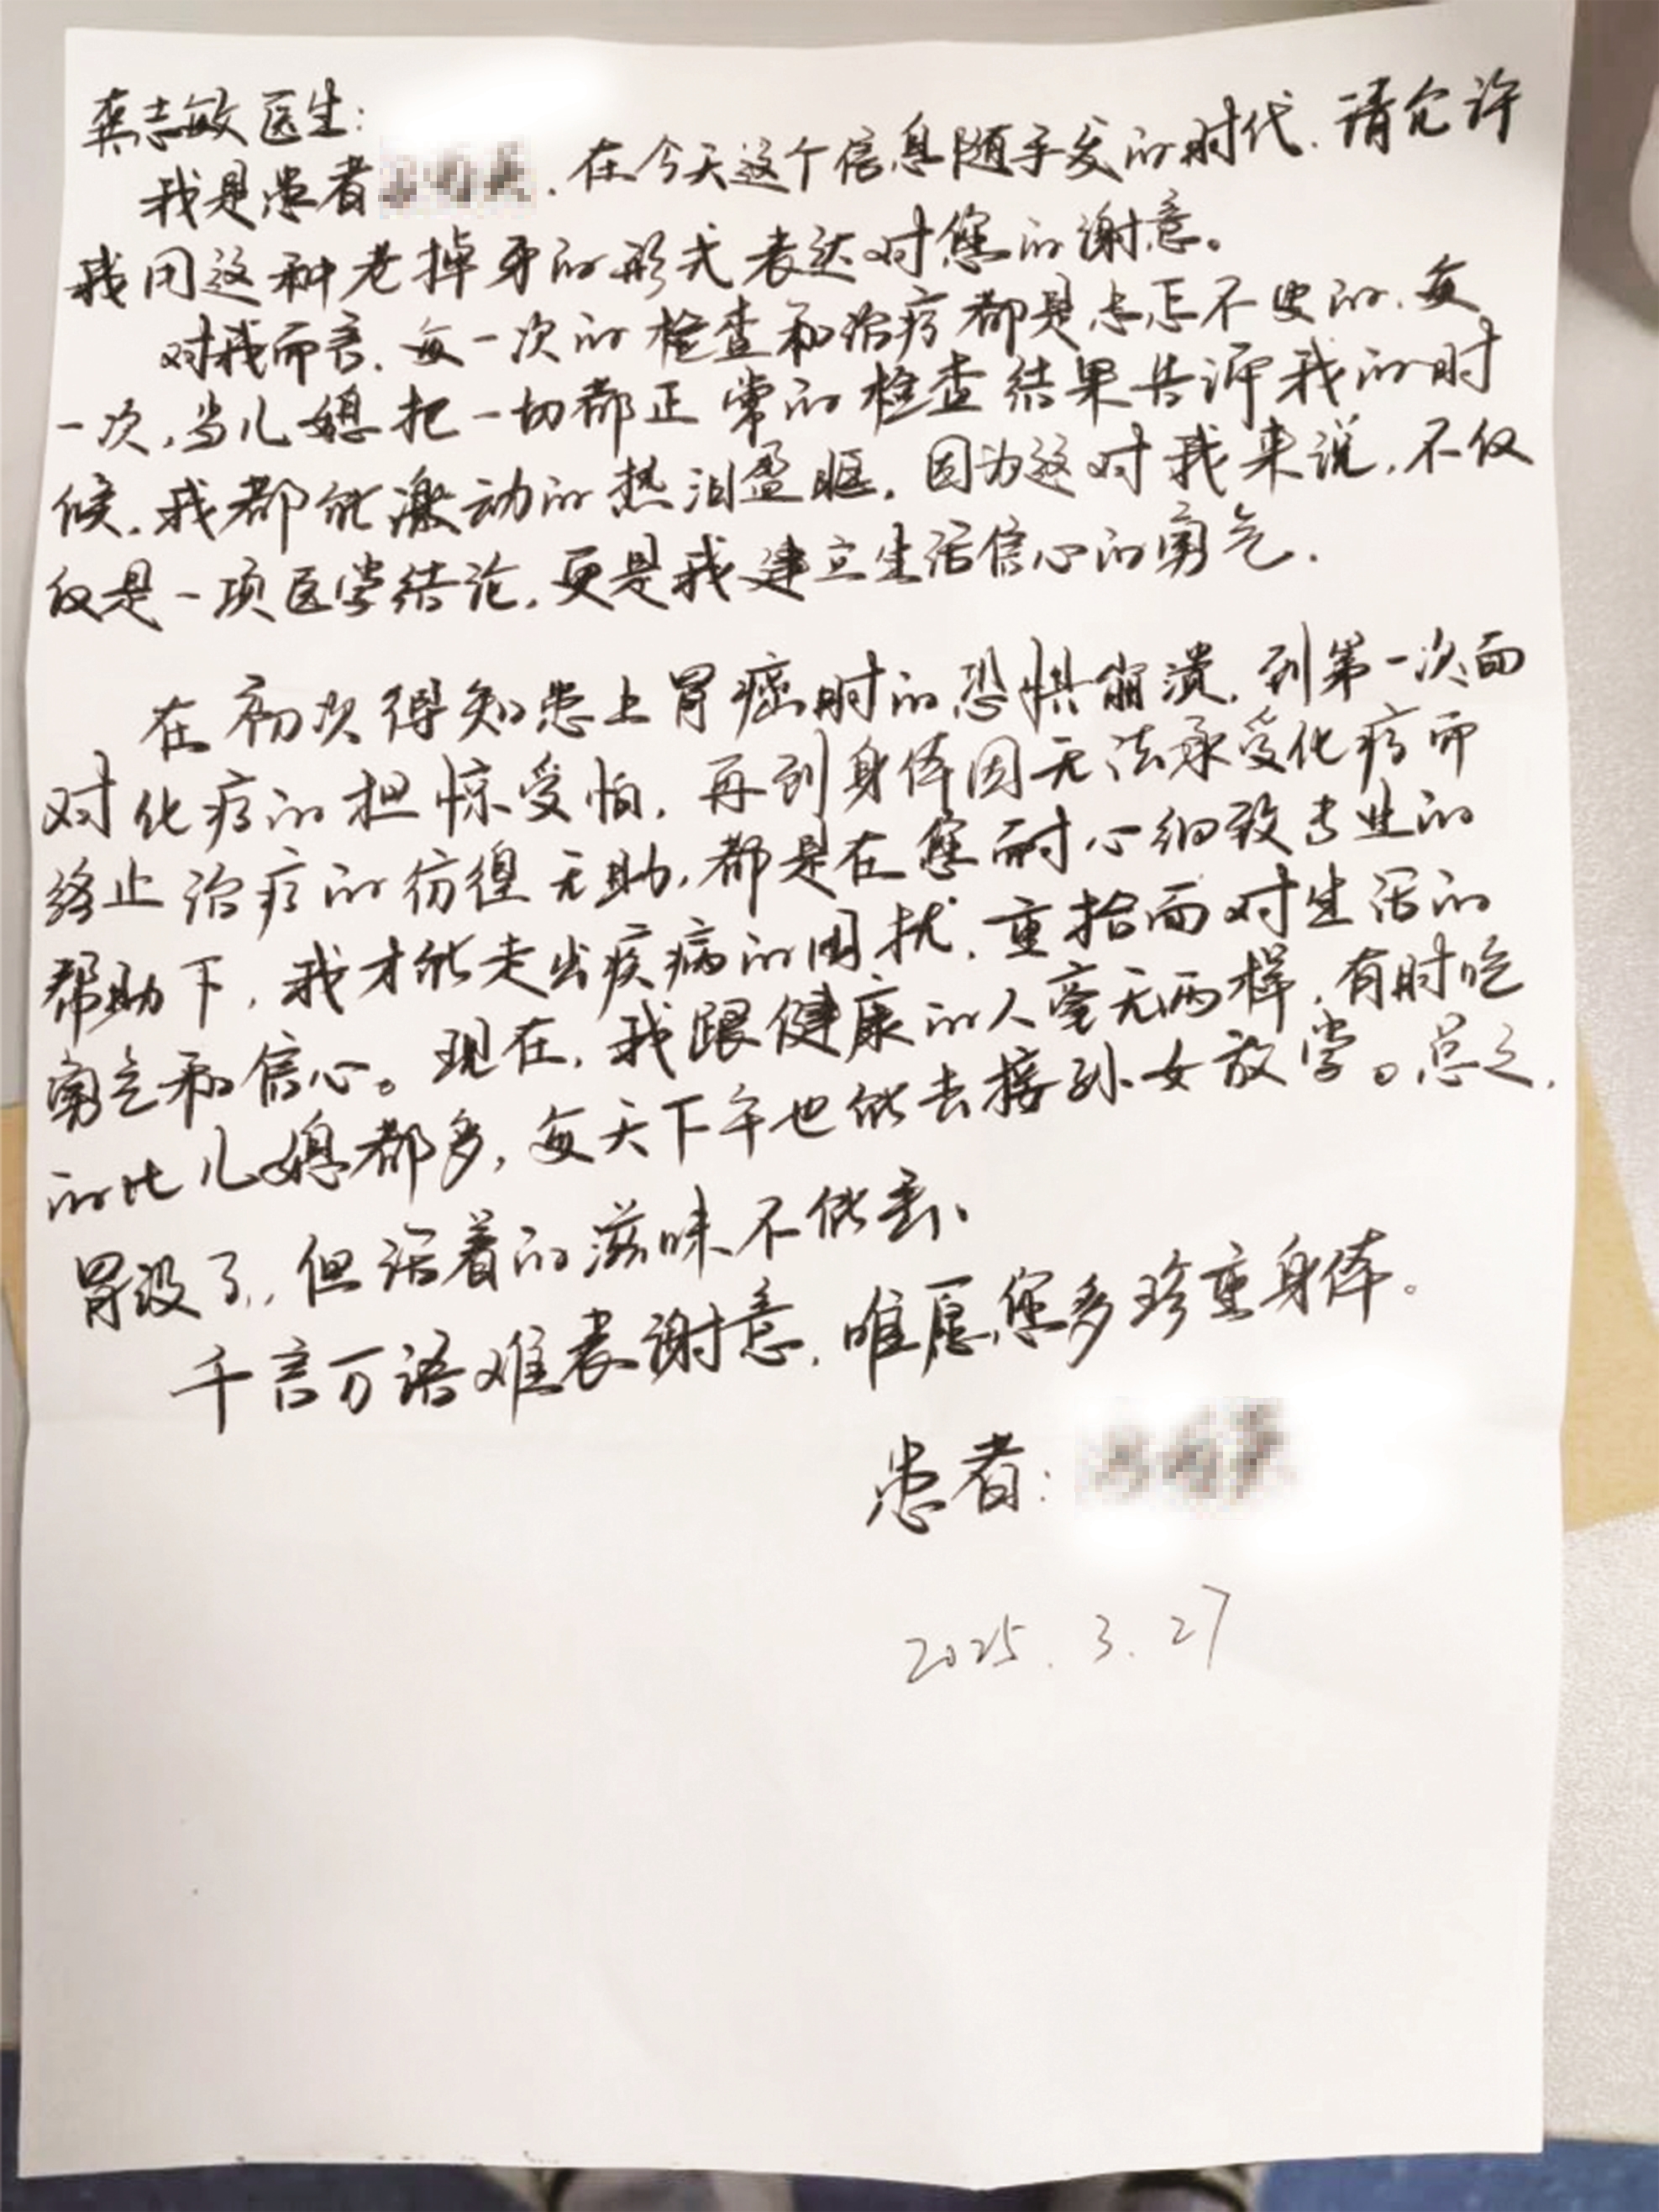 龚志敏医生：
我是患者 ，在今天这个信息随手发的时代，请允许
我用这种老掉牙的形式表达对您的谢意。
对我而言，每一次的检查和治疗都是忐忑不安的，每
一次，当儿媳把一切都正常的检查结果告诉我的时
候，我都能激动的热泪盈眶，因为这对我来说，不仅
仅是一项医学结论，更是我建立生活信心的勇气．
在初次得知患上胃癌时的恐惧崩溃，到第一次面
对化疗的担惊受怕，再到身体因无法承受化疗而
终止治疗的彷徨无助，都是在您耐心细致专业的
帮助下，我才能走出疾病的困扰，重拾面对生活的
勇气和信心。现在，我跟健康的人毫无两样，有时吃
的比儿媳都多，每天下午也能去接孙女放学。总之，
胃没了，但活着的滋味不能丢、
千言万语难表谢意，唯愿您多珍重身体。
患者：
2025．3．27